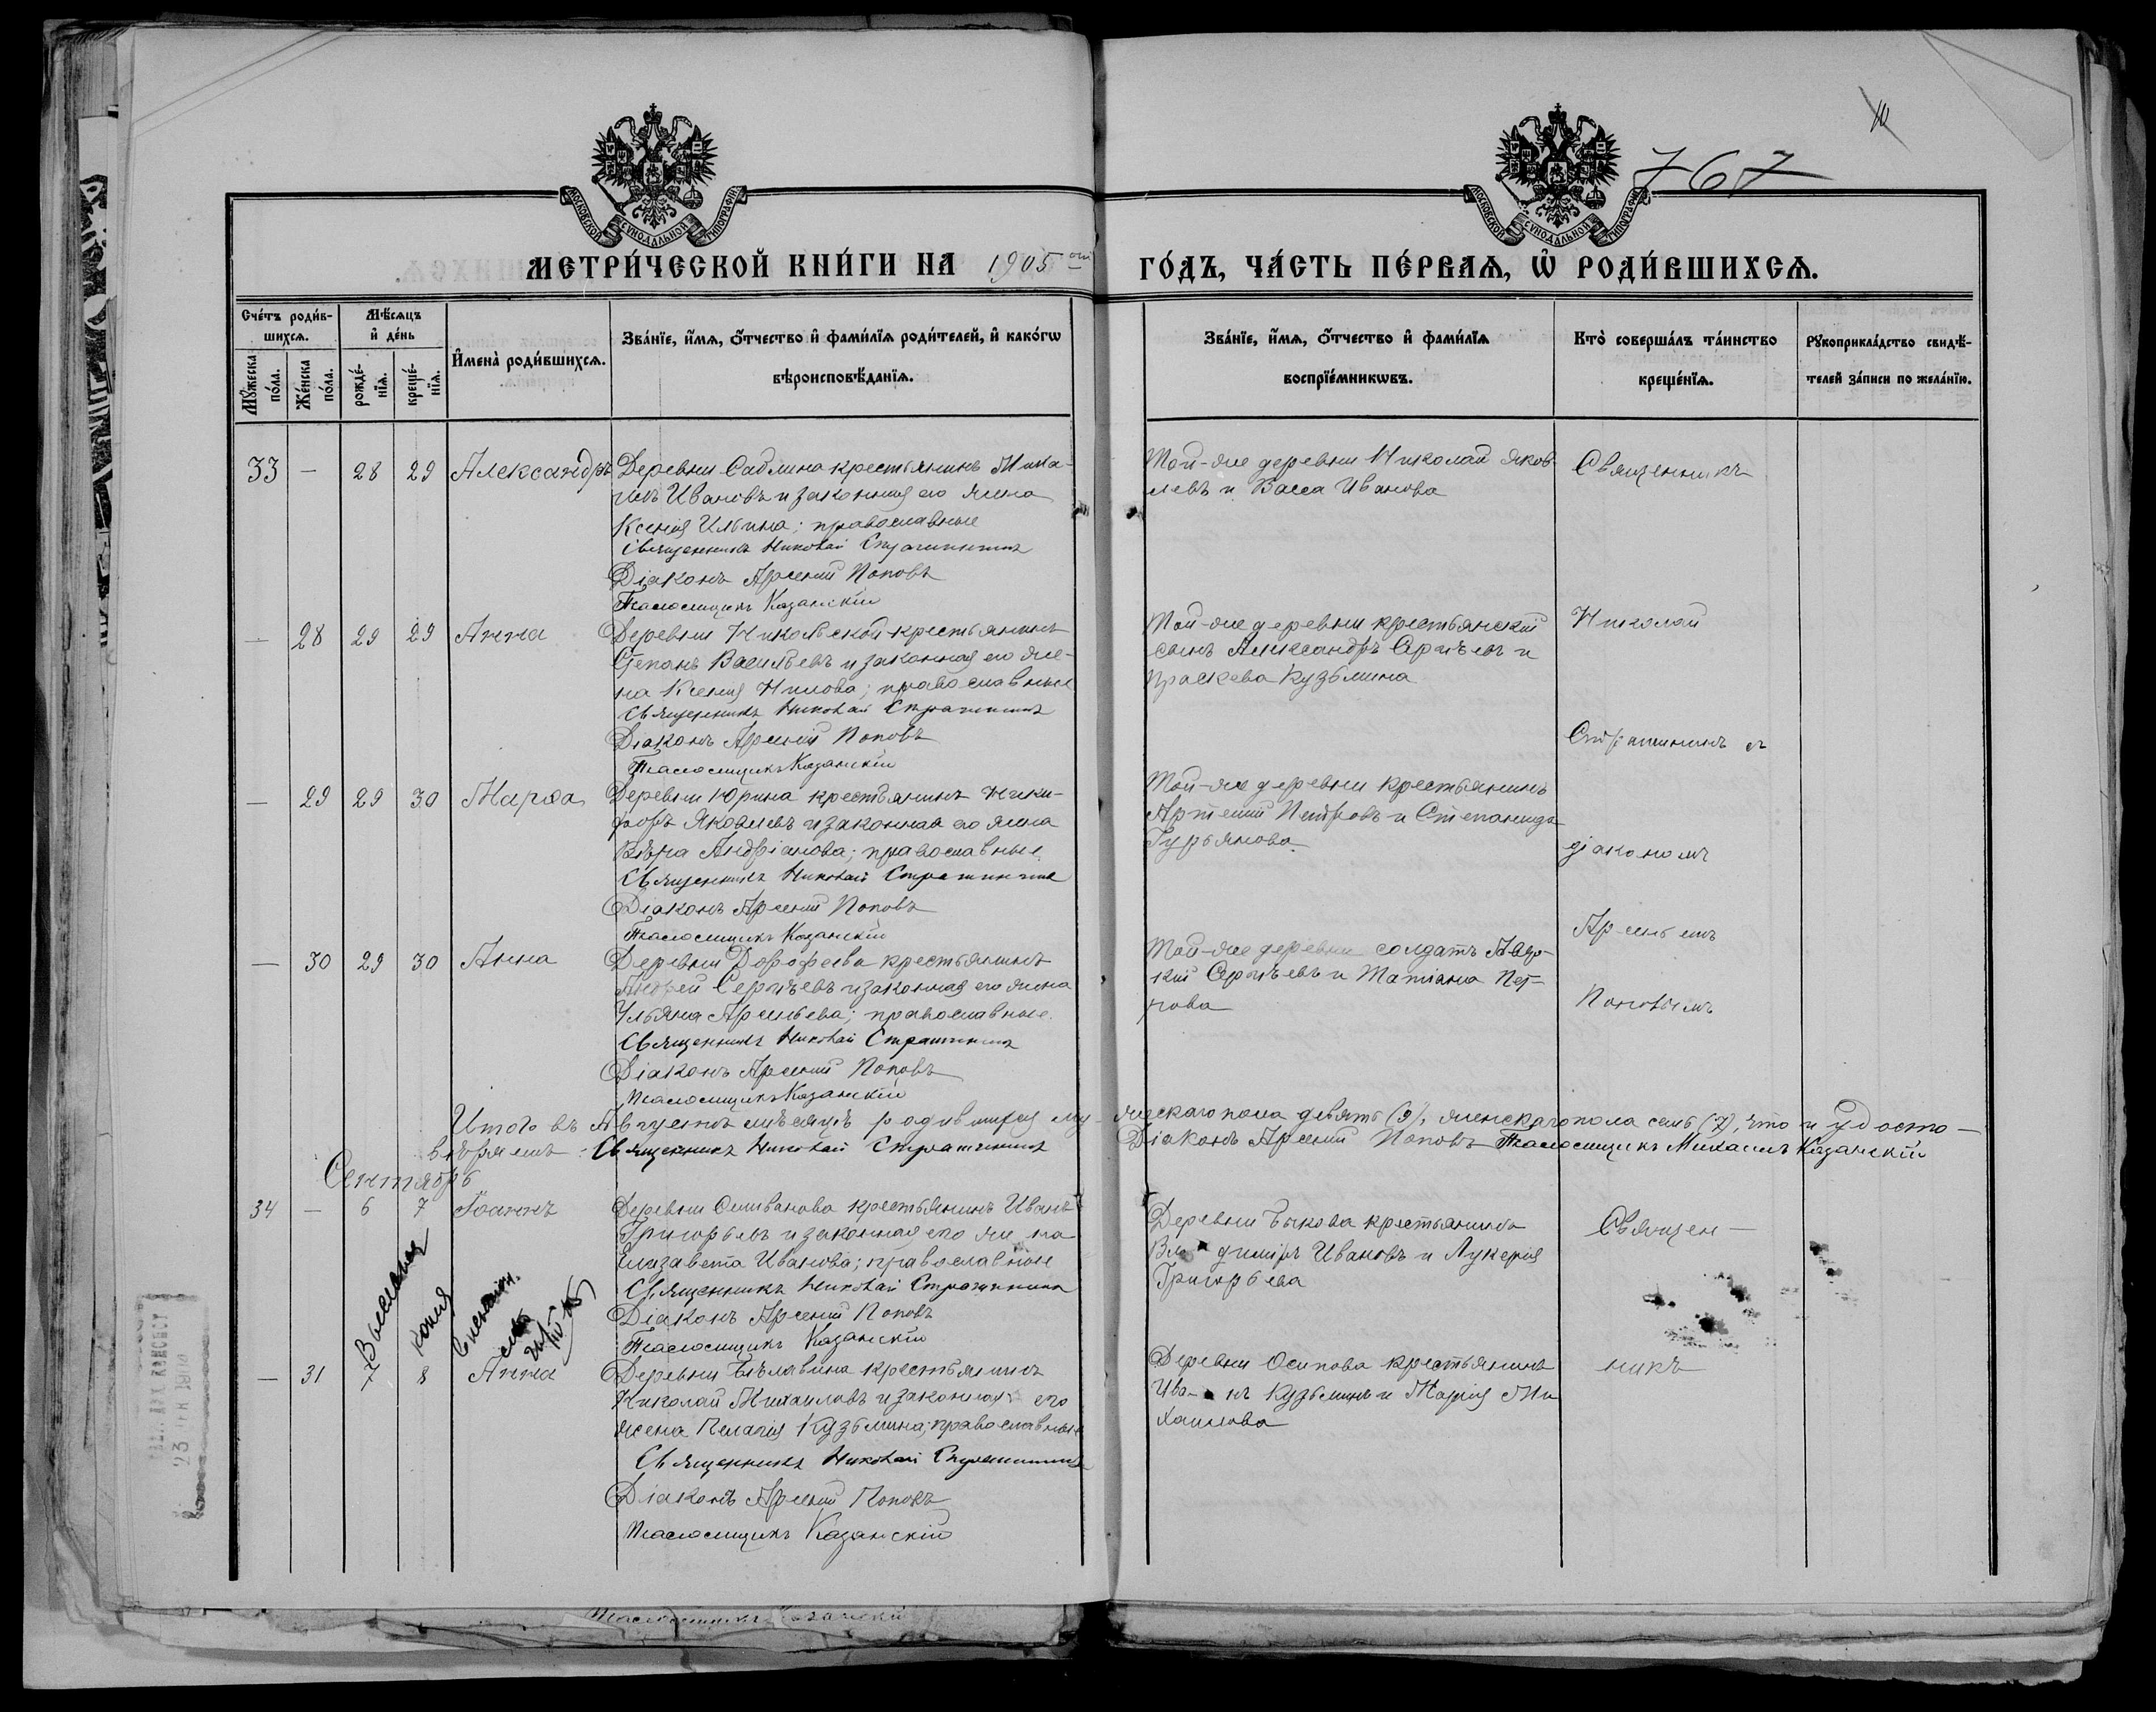 767
МОСКОВСКОЙ СѴНОДАЛЬНОЙ ТИПОГРАФІИ
МОСКОВСКОЙ СѴНОДАЛЬНОЙ ТИПОГРАФІИ
МЕТРИ́ЧЕСКОЙ КНИ́ГИ НА 1905 ой ГО́ДЪ, ЧА́СТЬ ПЕ́РВАЯ, Ѡ҆ РОДИ́ВШИХСЯ.
Сче́тъ роди́в-
шихся.
Мѣ́сяцъ
и҆ де́нь
Мꙋ́жеска по́ла.
Же́нска по́ла.
рожде́-
нїя.
креще́-
нїя.
И҆мена̀ роди́вшихся.
Зва́нїе, и҆́мя, ѻ҆́тчество и҆ фами́лїя роди́телей, и҆ како́гѡ
вѣроисповѣ́данїя.
Зва́нїе, и҆́мя, ѻ҆́тчество и҆ фами́лїя
воспрїе́мникѡвъ.
Кто̀ соверша́лъ та́инство
креще́нїя.
Рꙋкоприкла́дство свидѣ́-
телей за́писи по жела́нїю.
33 — 28 29 Александръ
Деревни Саблина крестьянинъ Миха-
илъ Ивановъ и законная его жена
Ксенія Ильина; православные
Священникъ Николай Страшининъ
Діаконъ Арсеній Поповъ
Псаломщикъ Казанскій
Той-же деревни Николай Яков-
левъ и Васса Иванова
Священникъ
— 28 29 29 Анна
Деревни Никольской крестьянинъ
Степанъ Васильевъ и законная его же-
на Ксенія Нилова; православные
Священникъ Николай Страшининъ
Діаконъ Арсеній Поповъ
Псаломщикъ Казанскій
Той-же деревни крестьянскій
сынъ Александръ Сергѣевъ и
Праскева Кузьмина
Николай
Страшининъ съ
— 29 29 30 Марѳа
Деревни Юрина крестьянинъ Ники-
форъ Яковлевъ и законная его жена
Вѣра Андріанова; православные.
Священникъ Николай Страшининъ
Діаконъ Арсеній Поповъ
Псаломщикъ Казанскій
Той-же деревни крестьянинъ
Артемій Петровъ и Степанида
Гурьянова.
діакономъ
Арсеніемъ
— 30 29 30 Анна
Деревни Дорофеева крестьянинъ
Андрей Сергѣевъ и законная его жена
Ульяна Арсеньева; православные.
Священникъ Николай Страшининъ
Діаконъ Арсеній Поповъ
Псаломщикъ Казанскій
Той-же деревни солдатъ
кій Сергѣевъ и Татіана Пет-
рова
Поповымъ
Итого въ Августѣ мѣсяцѣ родившихся му-жескаго пола девять (9), женскаго пола семь (7), что и удосто-
вѣряемъ: Священникъ Николай Страшининъ Діаконъ Арсеній Поповъ Псаломщикъ Михаилъ Казанскій
Сентябрь
34 — 6 7 Іоаннъ
Деревни Селиванова крестьянинъ Иванъ
Григорьевъ и законная его жена
Елизавета Иванова; православные
Священникъ Николай Страшининъ
Діаконъ Арсеній Поповъ
Псаломщикъ Казанскій
Деревни Быкова крестьянинъ
Владиміръ Ивановъ и Лукерія
Григорьева
Священ-
Выслана
копія
— 31 7 8 Анна
Деревни Бѣлавина крестьянинъ
Николай Михаиловъ и законная его
жена Пелагія Кузьмина; православные
Священникъ Николай Страшининъ
Діаконъ Арсеній Поповъ
Псаломщикъ Казанскій
Деревни Осипова крестьянинъ
Иванъ Кузьминъ и Марія Ми-
хаилова
никъ
Псаломщикъ Казанскій